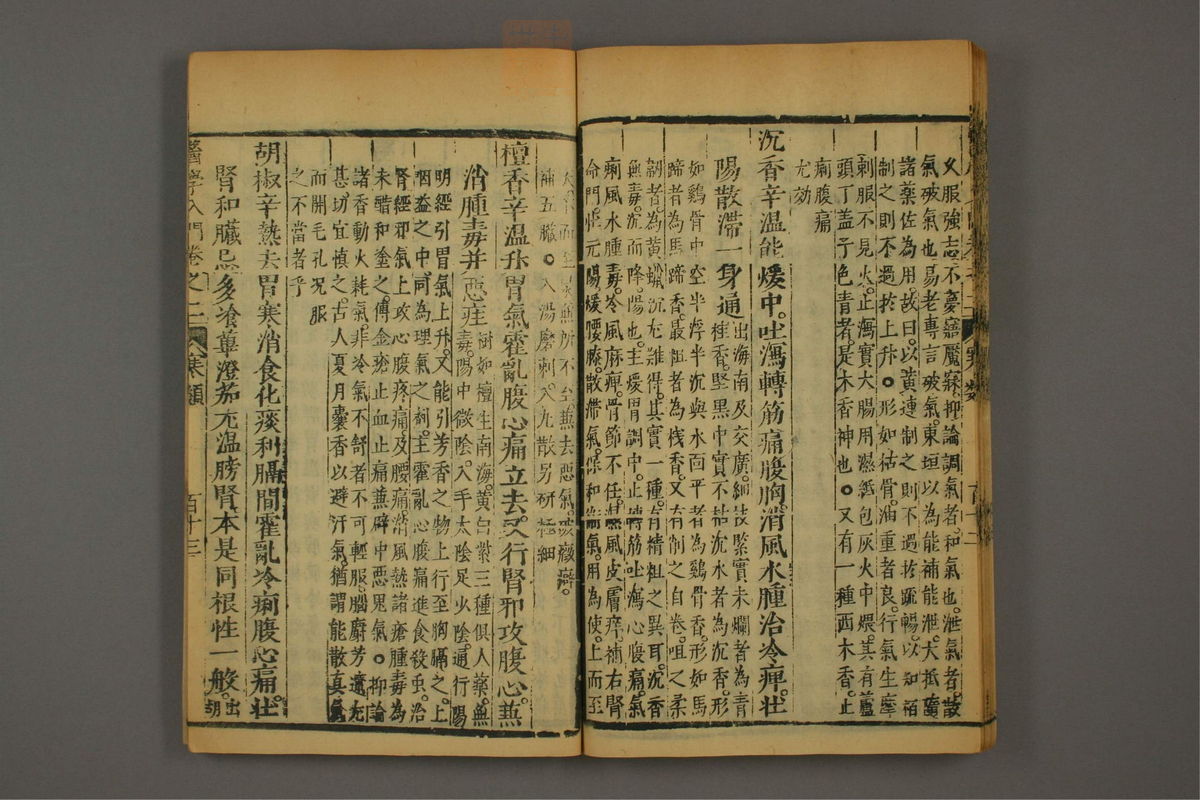 又服強志不夢魘寐抑論調氣者和氣也泄氣者散
氣破氣也易老專言破氣東垣以為能補能泄大抵隨
諸藥佐為用故曰以黃連制之則不過於疏暢以知栢
制之則不過於上升○形如枯骨油重者良行氣生磨
剌服不見火止瀉實大腸用濕紙包灰火中煨其有蘆
頭丁盖子色青者是木香神也○又有一種西木香止
痢腹痛
尤効
沉香辛温能煖中吐瀉轉筋痛腹胸消風水腫治冷痺壮
陽散滯一身通
出海南及交廣細枝緊實未爛者為青
桂香堅黑中實不枯沉水者為沉香形
如鷄骨中空半浮半沉與水靣平者為鷄骨香形如馬
蹄者為馬蹄香最粗者為棧香又有削之自卷咀之柔
韌者為黃蠟沉尤難得其實一種有精粗之異耳沉香
無毒沉而降陽也主煖胃調中止轉筋吐瀉心腹痛氣
痢風水腫毒冷風麻痺骨節不任濕風皮膚痒補右腎
命門壮元陽煖腰膝散滯氣保和衛氣用為使上而至
天下而至泉無所不至兼去惡氣破癥癖
補五臟○入湯磨刺入丸散另研極細
檀香辛温升胃氣霍亂腹心痛立去又行腎邪攻腹心兼
消腫毒并惡疰
樹如檀生南海黃白紫三種俱入藥無
毒陽中微陰入手太陰足少陰通行陽
明經引胃氣上升又能引芳香之物上行至胸膈之上
咽嗌之中同為理氣之劑主霍亂心腹痛進食殺虫治
腎經邪氣上攻心腹疼痛及腰痛消風熱諸瘡腫毒為
末醋和塗之傅金瘡止血止痛兼辟中惡鬼氣○抑論
諸香動火耗氣非冷氣不舒者不可輕服腦麝芳遭尤
甚切宜慎之古人夏月囊香以避汗氣猶謂能散真氣
而開毛孔况服
之不當者乎
胡椒辛熱去胃寒消食化痰利膈間霍亂冷痢腹心痛壮
腎和臟忌多飡蓽澄茄尤温膀腎本是同根性一般
出
胡
醫學入門卷之二
寒類
百十三